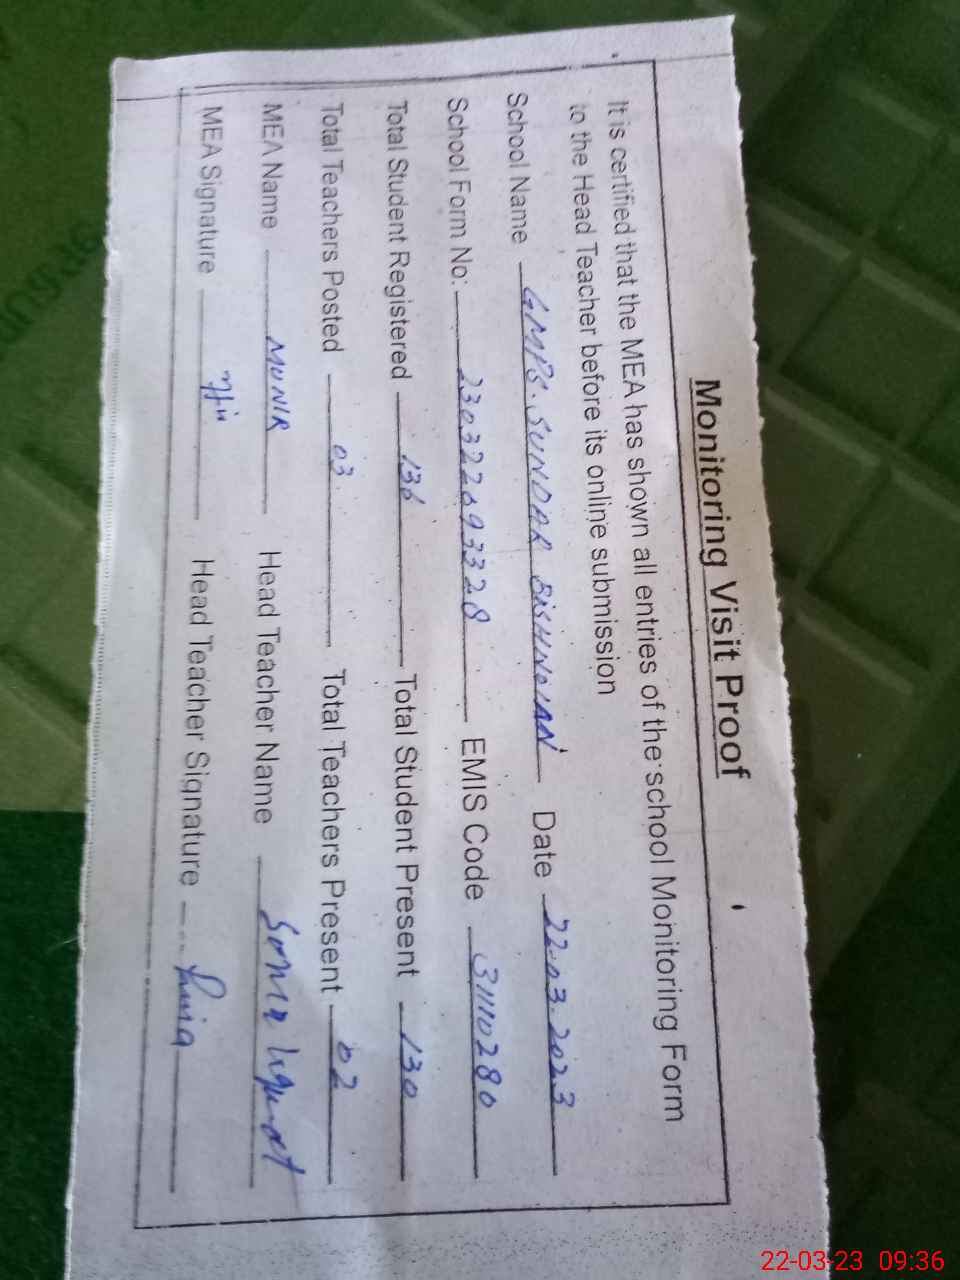 Monitoring Visit Proof
It is certified that the MEA has shown all entries of the school Monitoring Form
to the Head Teacher before its online submission
School Name GMPS. SUNDAR BISHNOIAN Date 22.03.2023
School Form No: 230322693328 EMIS Code 31110280
Total Student Registered 136 Total Student Present 130
Total Teachers Posted 03 Total Teachers Present 02
MEA Name MUNIR Head Teacher Name
MEA Signature Head Teacher Signature
22-03-23 09:36